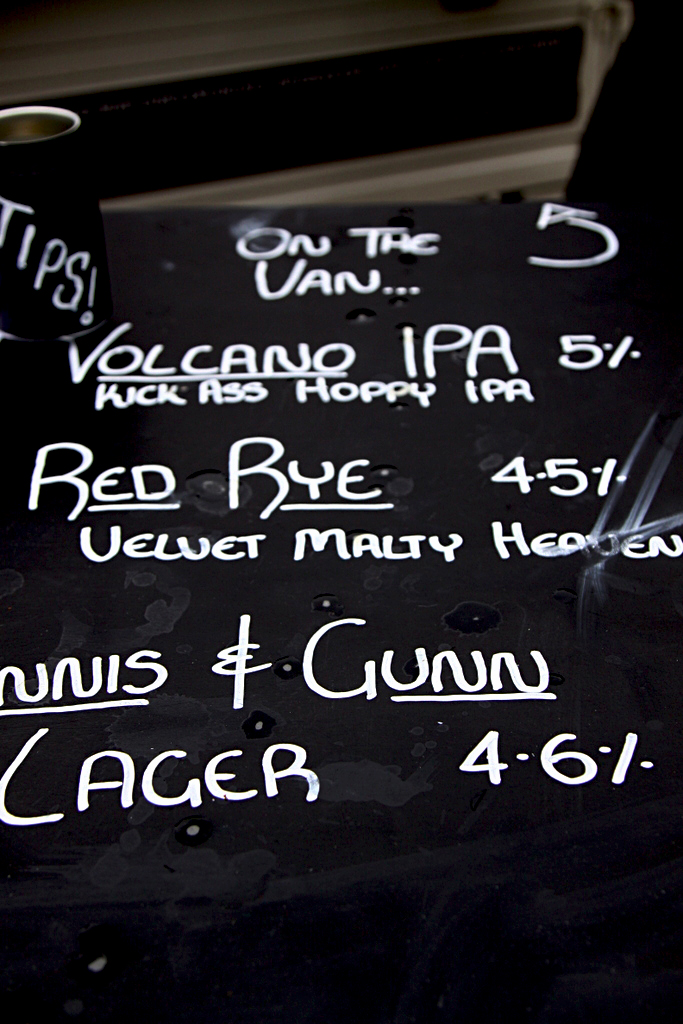 TIPS!
ON THE 5
VAN...
VOLCANO IPA 5%
KICK ASS HOPPY IPA
RED RYE 4.5%
VELVET MALTY HEAVEN
NNIS & GUNN
LAGER 4.6%